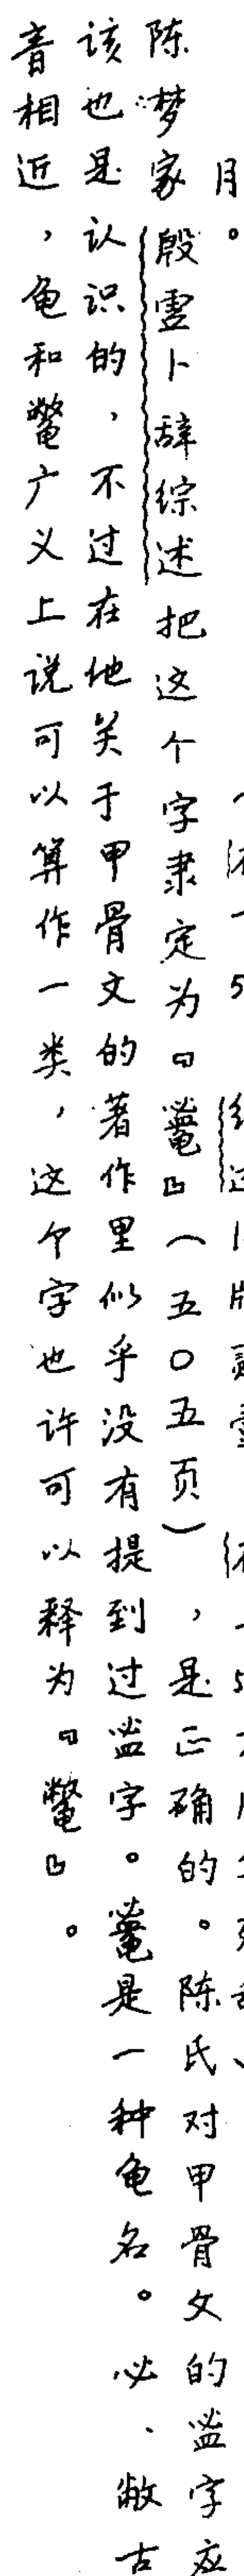 月。
陈梦家殷虚卜辞综述把这个字隶定为「」（五〇五页），是正确的。陈氏对甲骨文的𥁑字应
该也是认识的，不过在他关于甲骨文的著作里似乎没有提到过𥁑字。是一种龟名。必、敝古
音相近，龟和鼈广义上说可以算作一类，这个字也许可以释为「鼈」。